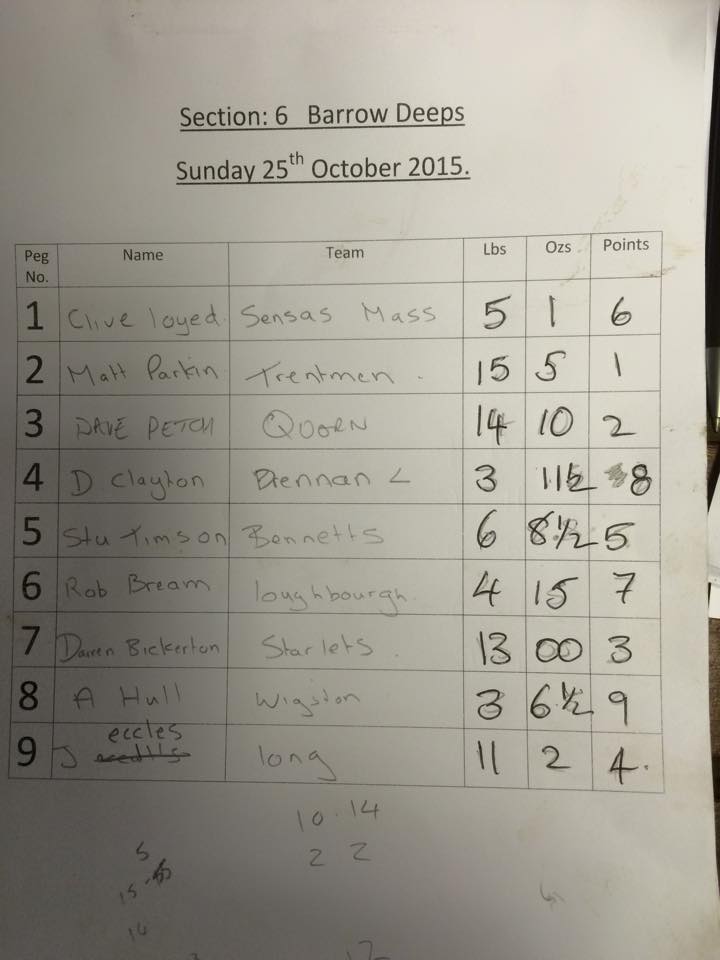 Section: 6 Barrow Deeps
Sunday 25th October 2015.
Peg No. Name Team Lbs Ozs Points
1 Clive loyed Sensas Mass 5 1 6
2 Matt Parkin Trentmen . 15 5 1
3 DAVE PETCH QUORN 14 10 2
4 D Clayton Drennan L 3 11½ 8
5 Stu Timson Bennetts 6 8½ 5
6 Rob Bream loughbourgh. 4 15 7
7 Darren Bickerton Starlets . 13 00 3
8 A Hull Wigston 3 6½ 9
9 J eccles long 11 2 4.
10.14
2 2
5
15
14